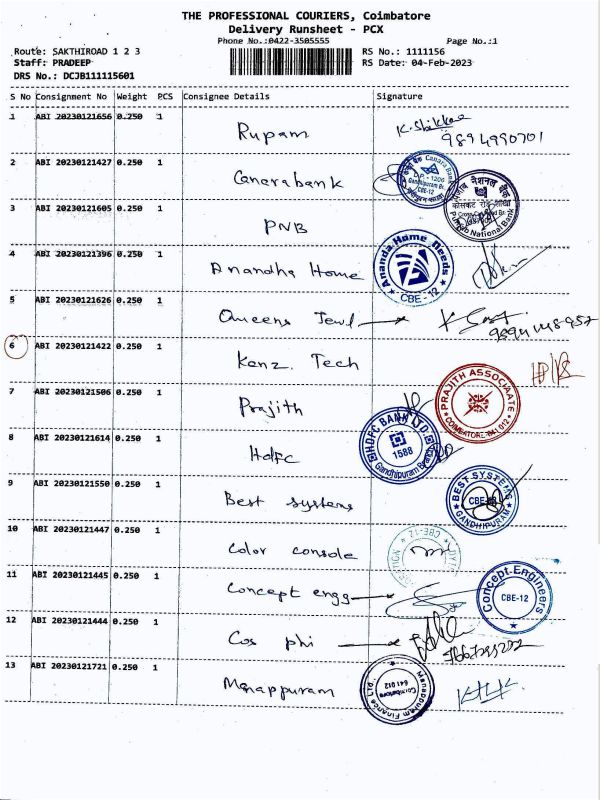 THE PROFESSIONAL COURIERS, Coimbatore
Delivery Runsheet - PCX
Phone No.:0422-3505555 Page No.:1
Route: SAKTHIROAD 1 2 3 RS No.: 1111156
Staff: PRADEEP RS Date: 04-Feb-2023
DRS No.: DCJB111115601
S No Consignment No Weight PCS Consignee Details Signature
1 ABI 20230121656 0.250 1 Rupam
9894990701
2 ABI 20230121427 0.250 1 Canarabank
Canara Bank
D.P. - 1206
Gandhipuram Br.
CBE-12
3 ABI 20230121605 0.250 1 PNB
पंजाब नैशनल बैंक
Punjab National Bank
4 ABI 20230121396 0.250 1 Anandha Home
Ananda Home Needs
CBE - 12
5 ABI 20230121626 0.250 1 Queens Jewl
6 ABI 20230121422 0.250 1 Kenz. Tech
7 ABI 20230121506 0.250 1 Prajith
PRAJITH ASSOCIAATE
COIMBATORE-641 012
8 ABI 20230121614 0.250 1 HDFC
HDFC BANK LTD
1588
Gandhipuram Branch
9 ABI 20230121550 0.250 1 Best systems
BEST SYSTEMS
CBE-12
GANDHIPURAM
10 ABI 20230121447 0.250 1 Color console
CBE-12
11 ABI 20230121445 0.250 1 Concept engg
Concept-Engineers
CBE-12
12 ABI 20230121444 0.250 1 Cos phi
13 ABI 20230121721 0.250 1 Manappuram
Manappuram Finance LTD.
Coimbatore
641 012